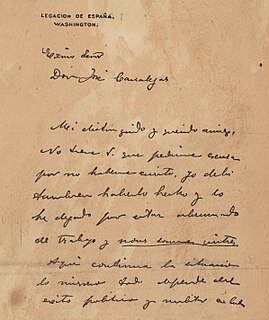 LEGACION DE ESPAÑA.
WASHINGTON.
Exmo Señor
Don José Canalejas
Mi distinguido y querido amigo,
No tiene V. que pedirme excusa
por no haberme escrito, yo debi
tambien haberlo hecho y lo
he dejado por estar abrumado
de trabajo y nous sommes quittes.
Aqui continua la situacion
lo mismo. Todo depende del
exito politico y militar en Cuba